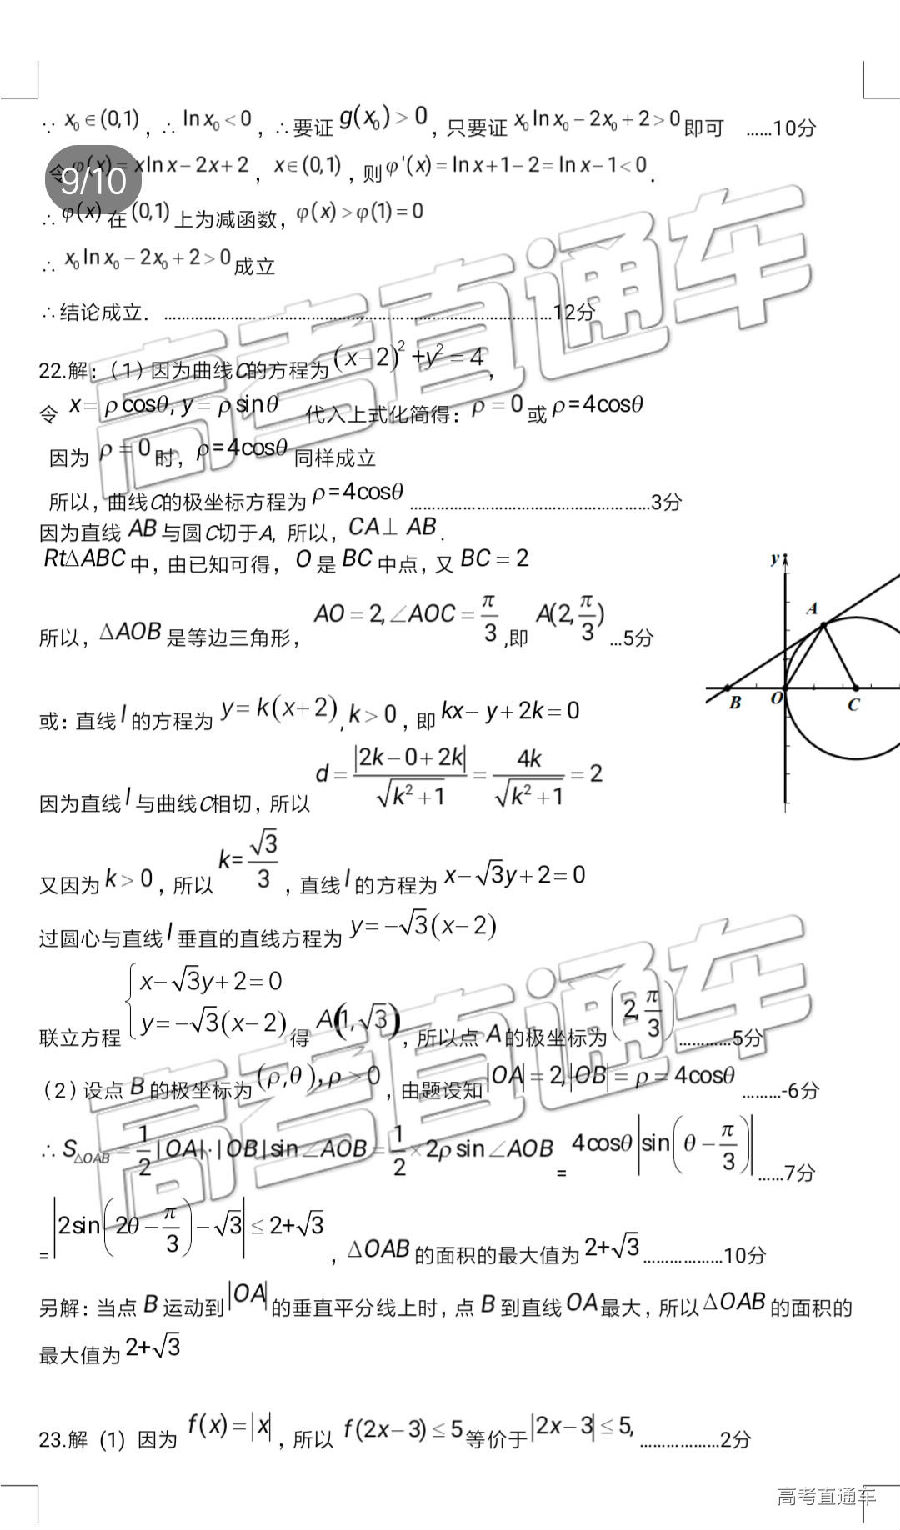 ∵ x₀∈(0,1)，∴ ln x₀<0，∴要证 g(x₀)>0，只要证 x₀ln x₀−2x₀+2>0 即可 ......10分
令 φ(x)=xln x−2x+2，x∈(0,1)，则φ'(x)=ln x+1−2=ln x−1<0．
9/10
∴ φ(x) 在(0,1) 上为减函数，φ(x)>φ(1)=0
∴ x₀ln x₀−2x₀+2>0 成立
∴结论成立．........................................................................12分
22.解：（1）因为曲线C的方程为(x−2)²+y²=4，
令 x=ρcosθ, y=ρsinθ 代入上式化简得：ρ=0 或 ρ=4cosθ
因为 ρ=0 时，ρ=4cosθ 同样成立
所以，曲线C的极坐标方程为 ρ=4cosθ ................................................3分
因为直线 AB 与圆C切于A, 所以，CA⊥AB．
Rt△ABC 中，由已知可得，O 是 BC 中点，又 BC=2
所以，△AOB 是等边三角形，AO=2,∠AOC=π/3 ,即 A(2,π/3) ...5分
y
A
B
O
C
或：直线 l 的方程为 y=k(x−2), k>0，即 kx−y+2k=0
因为直线 l 与曲线C相切，所以 d=|2k−0+2k|/√(k²+1)=4k/√(k²+1)=2
又因为 k>0，所以 k=√3/3，直线 l 的方程为 x−√3y+2=0
过圆心与直线 l 垂直的直线方程为 y=−√3(x−2)
联立方程 {x−√3y+2=0 y=−√3(x−2) 得 A(1,√3)，所以点 A 的极坐标为 (2,π/3) ............5分
（2）设点 B 的极坐标为 (ρ,θ), ρ>0，由题设知 |OA|=2,|OB|=ρ=4cosθ .........-6分
∴ S△OAB=1/2|OA|·|OB|sin∠AOB=1/2×2ρsin∠AOB = 4cosθ|sin(θ−π/3)| ......7分
=|2sin(2θ−π/3)−√3|≤2+√3，△OAB 的面积的最大值为 2+√3 ..................10分
另解：当点 B 运动到 |OA| 的垂直平分线上时，点 B 到直线 OA 最大，所以 △OAB 的面积的
最大值为 2+√3
23.解 (1) 因为 f(x)=|x|，所以 f(2x−3)≤5 等价于|2x−3|≤5, ..................2分
高考直通车
高考直通车
高考直通车